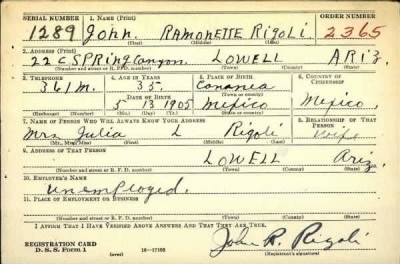 SERIAL NUMBER 1. NAME (Print) ORDER NUMBER
1289 John. RAMONETTE RIGOLI. 2365
(First) (Middle) (Last)
2. ADDRESS (Print)
22 C SPRING Canyon. LOWELL ARIZ.
(Number and street or R. F. D. number) (Town) (County) (State)
3. TELEPHONE 4. AGE IN YEARS 5. PLACE OF BIRTH 6. COUNTRY OF CITIZENSHIP
361M. 35. Cananea
DATE OF BIRTH (Town or county)
5 13 1905 Mexico Mexico.
(Exchange) (No.) (Mo.) (Day) (Yr.) (State or country)
7. NAME OF PERSON WHO WILL ALWAYS KNOW YOUR ADDRESS 8. RELATIONSHIP OF THAT PERSON
Mrs Julia L Rigoli Wife
(Mr., Mrs., Miss) (First) (Middle) (Last)
9. ADDRESS OF THAT PERSON
LOWELL Ariz.
(Number and street or R. F. D. number) (Town) (County) (State)
10. EMPLOYER'S NAME
Unemployed.
11. PLACE OF EMPLOYMENT OR BUSINESS
(Number and street or R. F. D. number) (Town) (County) (State)
I AFFIRM THAT I HAVE VERIFIED ABOVE ANSWERS AND THAT THEY ARE TRUE.
REGISTRATION CARD
D. S. S. Form 1 (over) 16-17105 John R. Rigoli
(Registrant's signature)